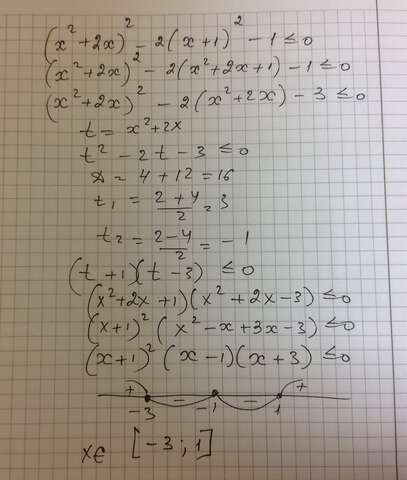 (x² + 2x)² - 2(x + 1)² - 1 ≤ 0
(x² + 2x)² - 2(x² + 2x + 1) - 1 ≤ 0
(x² + 2x)² - 2(x² + 2x) - 3 ≤ 0
t = x² + 2x
t² - 2t - 3 ≤ 0
D = 4 + 12 = 16
t₁ = (2+4)/2 = 3
t₂ = (2-4)/2 = -1
(t + 1)(t - 3) ≤ 0
(x² + 2x + 1)(x² + 2x - 3) ≤ 0
(x + 1)² (x² - x + 3x - 3) ≤ 0
(x + 1)² (x - 1)(x + 3) ≤ 0
+ - - +
-3 -1 1
x ∈ [-3 ; 1]